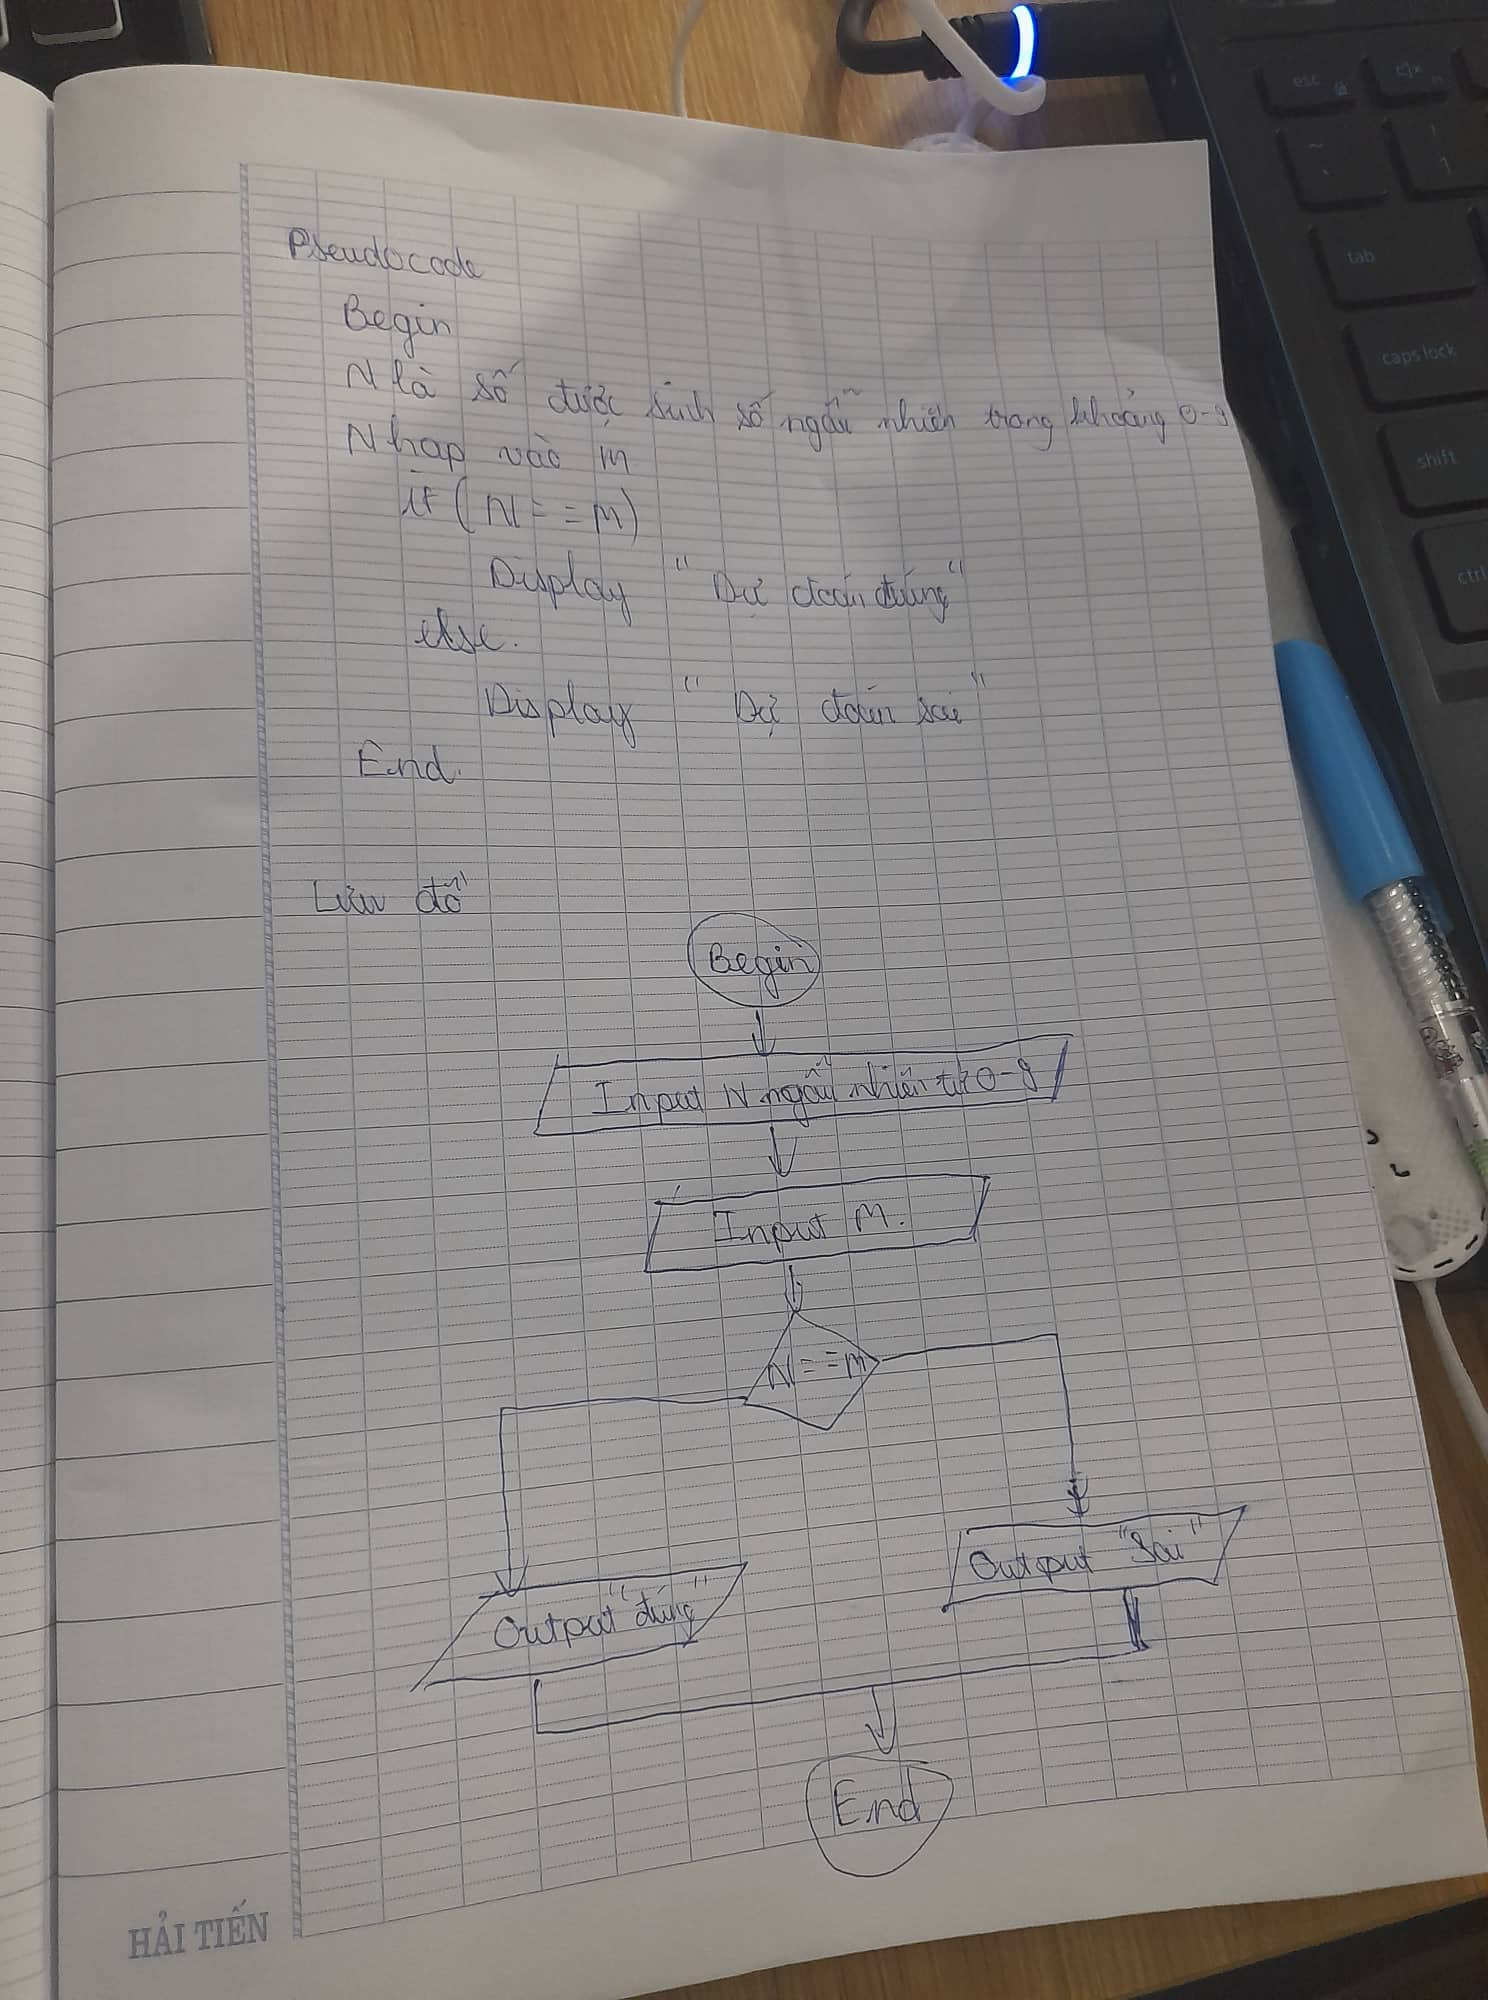 Pseudocode
Begin
N là số được sinh số ngẫu nhiên trong khoảng 0-9
Nhap vào m
if (N == m)
Display "Dự đoán đúng"
else.
Display "Dự đoán sai"
End.
Lưu đồ
Begin
Input N ngẫu nhiên từ 0-9
Input M.
N == m
Output "Sai"
Output "đúng"
End
HẢI TIẾN
esc
tab
caps lock
shift
ctrl